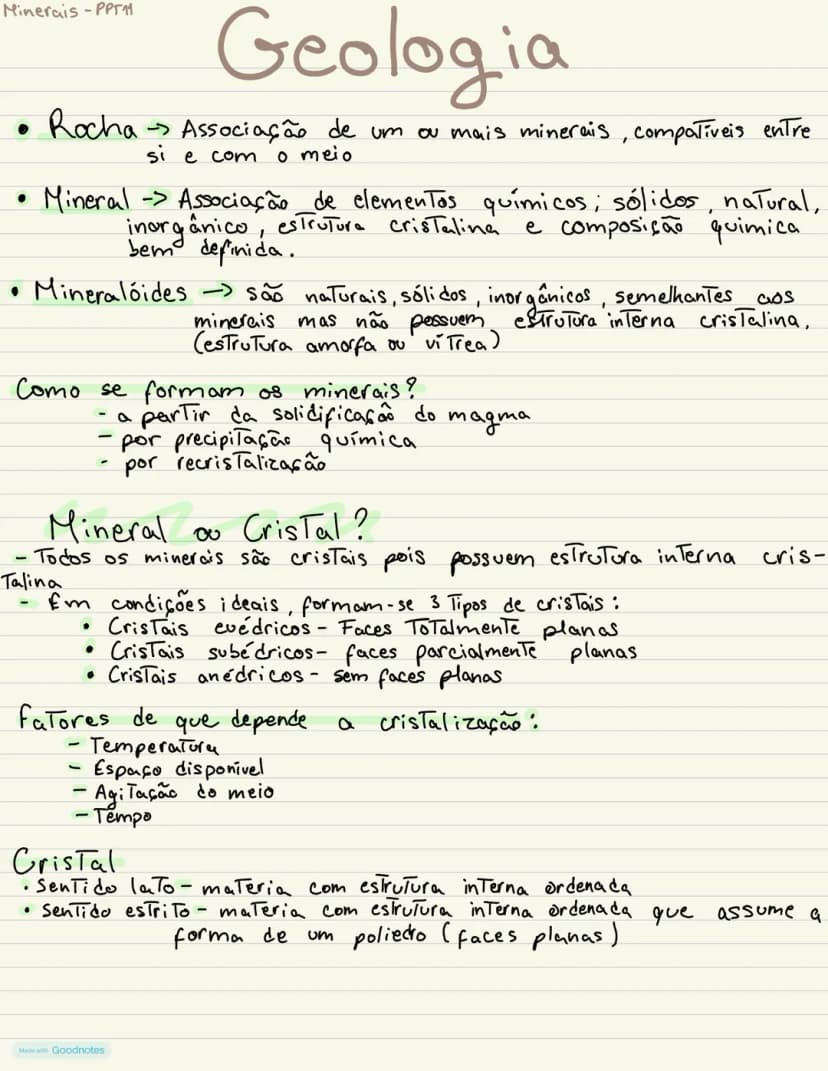 Minerais - PPT11
Geologia
• Rocha -> Associação de um ou mais minerais, compatíveis entre
si e com o meio
• Mineral -> Associação de elementos químicos; sólidos, natural,
inorgânico, estrutura cristalina e composição quimica
bem definida.
• Mineralóides -> são naturais, sólidos, inorgânicos, semelhantes aos
minerais mas não possuem estrutura interna cristalina.
(estrutura amorfa ou vítrea)
Como se formam os minerais?
- a partir da solidificação do magma
- por precipitação química
- por recristalização
Mineral ou Cristal?
- Todos os minerais são cristais pois possuem estrutura interna cris-
talina
- Em condições ideais, formam-se 3 tipos de cristais:
• Cristais euédricos - Faces Totalmente planas
• Cristais subédricos- faces parcialmente planas
• Cristais anédricos - sem faces planas
Fatores de que depende a cristalização:
- Temperatura
- Espaço disponível
- Agitação do meio
- Tempo
Cristal
• Sentido lato - materia com estrutura interna ordenada
• Sentido estrito - materia com estrutura interna ordenada que assume a
forma de um poliedro (faces planas)
Made with Goodnotes